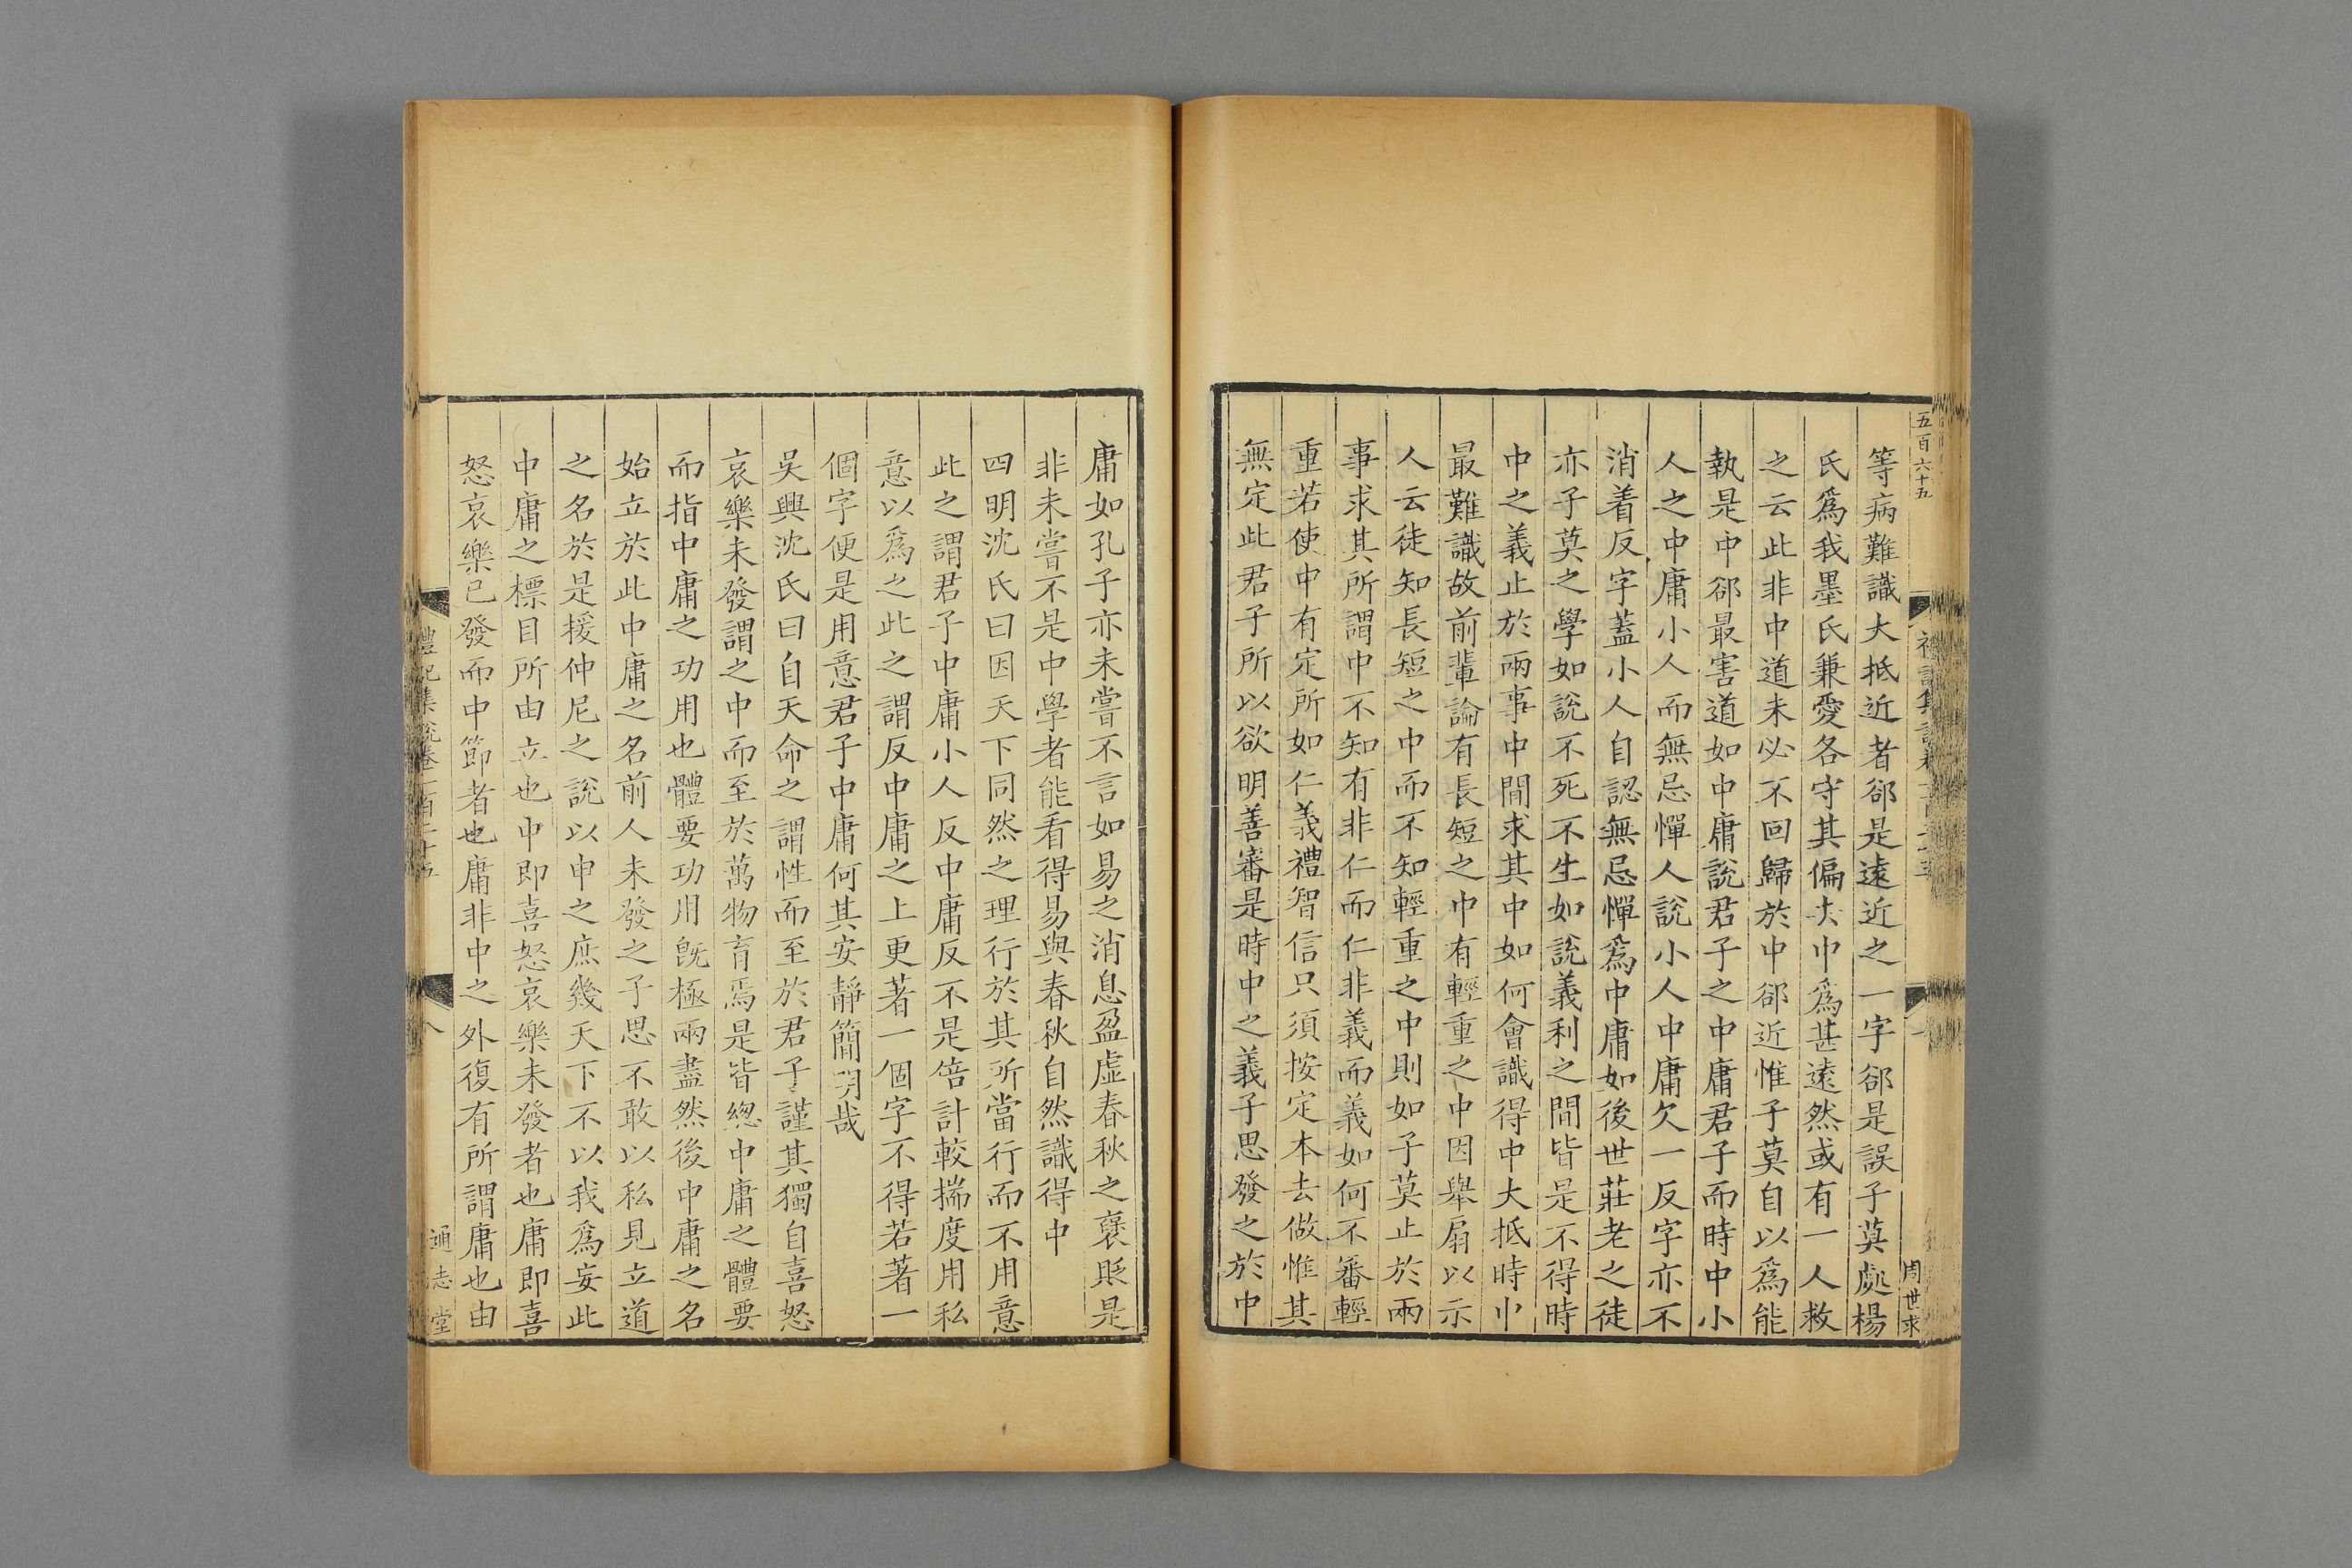 五百六十五
周世求
等病難識大抵近者郤是遠近之一字郤是誤子莫處楊
氏爲我墨氏兼愛各守其偏去中爲甚遠然或有一人救
之云此非中道未必不回歸於中郤近惟子莫自以爲能
執是中郤最害道如中庸說君子之中庸君子而時中小
人之中庸小人而無忌憚人說小人中庸欠一反字亦不
消着反字蓋小人自認無忌憚爲中庸如後世莊老之徒
亦子莫之學如說不死不生如說義利之間皆是不得時
中之義止於兩事中間求其中如何會識得中大抵時中
最難識故前輩論有長短之中有輕重之中因舉扇以示
人云徒知長短之中而不知輕重之中則如子莫止於兩
事求其所謂中不知有非仁而仁非義而義如何不審輕
重若使中有定所如仁義禮智信只須按定本去做惟其
無定此君子所以欲明善審是時中之義子思發之於中
庸如孔子亦未嘗不言如易之消息盈虛春秋之褒貶是
非未嘗不是中學者能看得易與春秋自然識得中
四明沈氏曰因天下同然之理行於其所當行而不用意
此之謂君子中庸小人反中庸反不是倍計較揣度用私
意以爲之此之謂反中庸之上更著一個字不得若著一
個字便是用意君子中庸何其安靜簡明哉
吳興沈氏曰自天命之謂性而至於君子謹其獨自喜怒
哀樂未發謂之中而至於萬物育焉是皆總中庸之體要
而指中庸之功用也體要功用旣極兩盡然後中庸之名
始立於此中庸之名前人未發之子思不敢以私見立道
之名於是援仲尼之說以申之庶幾天下不以我爲妄此
中庸之標目所由立也中即喜怒哀樂未發者也庸即喜
怒哀樂已發而中節者也庸非中之外復有所謂庸也由
禮記集說卷一百二十五
八
通志堂